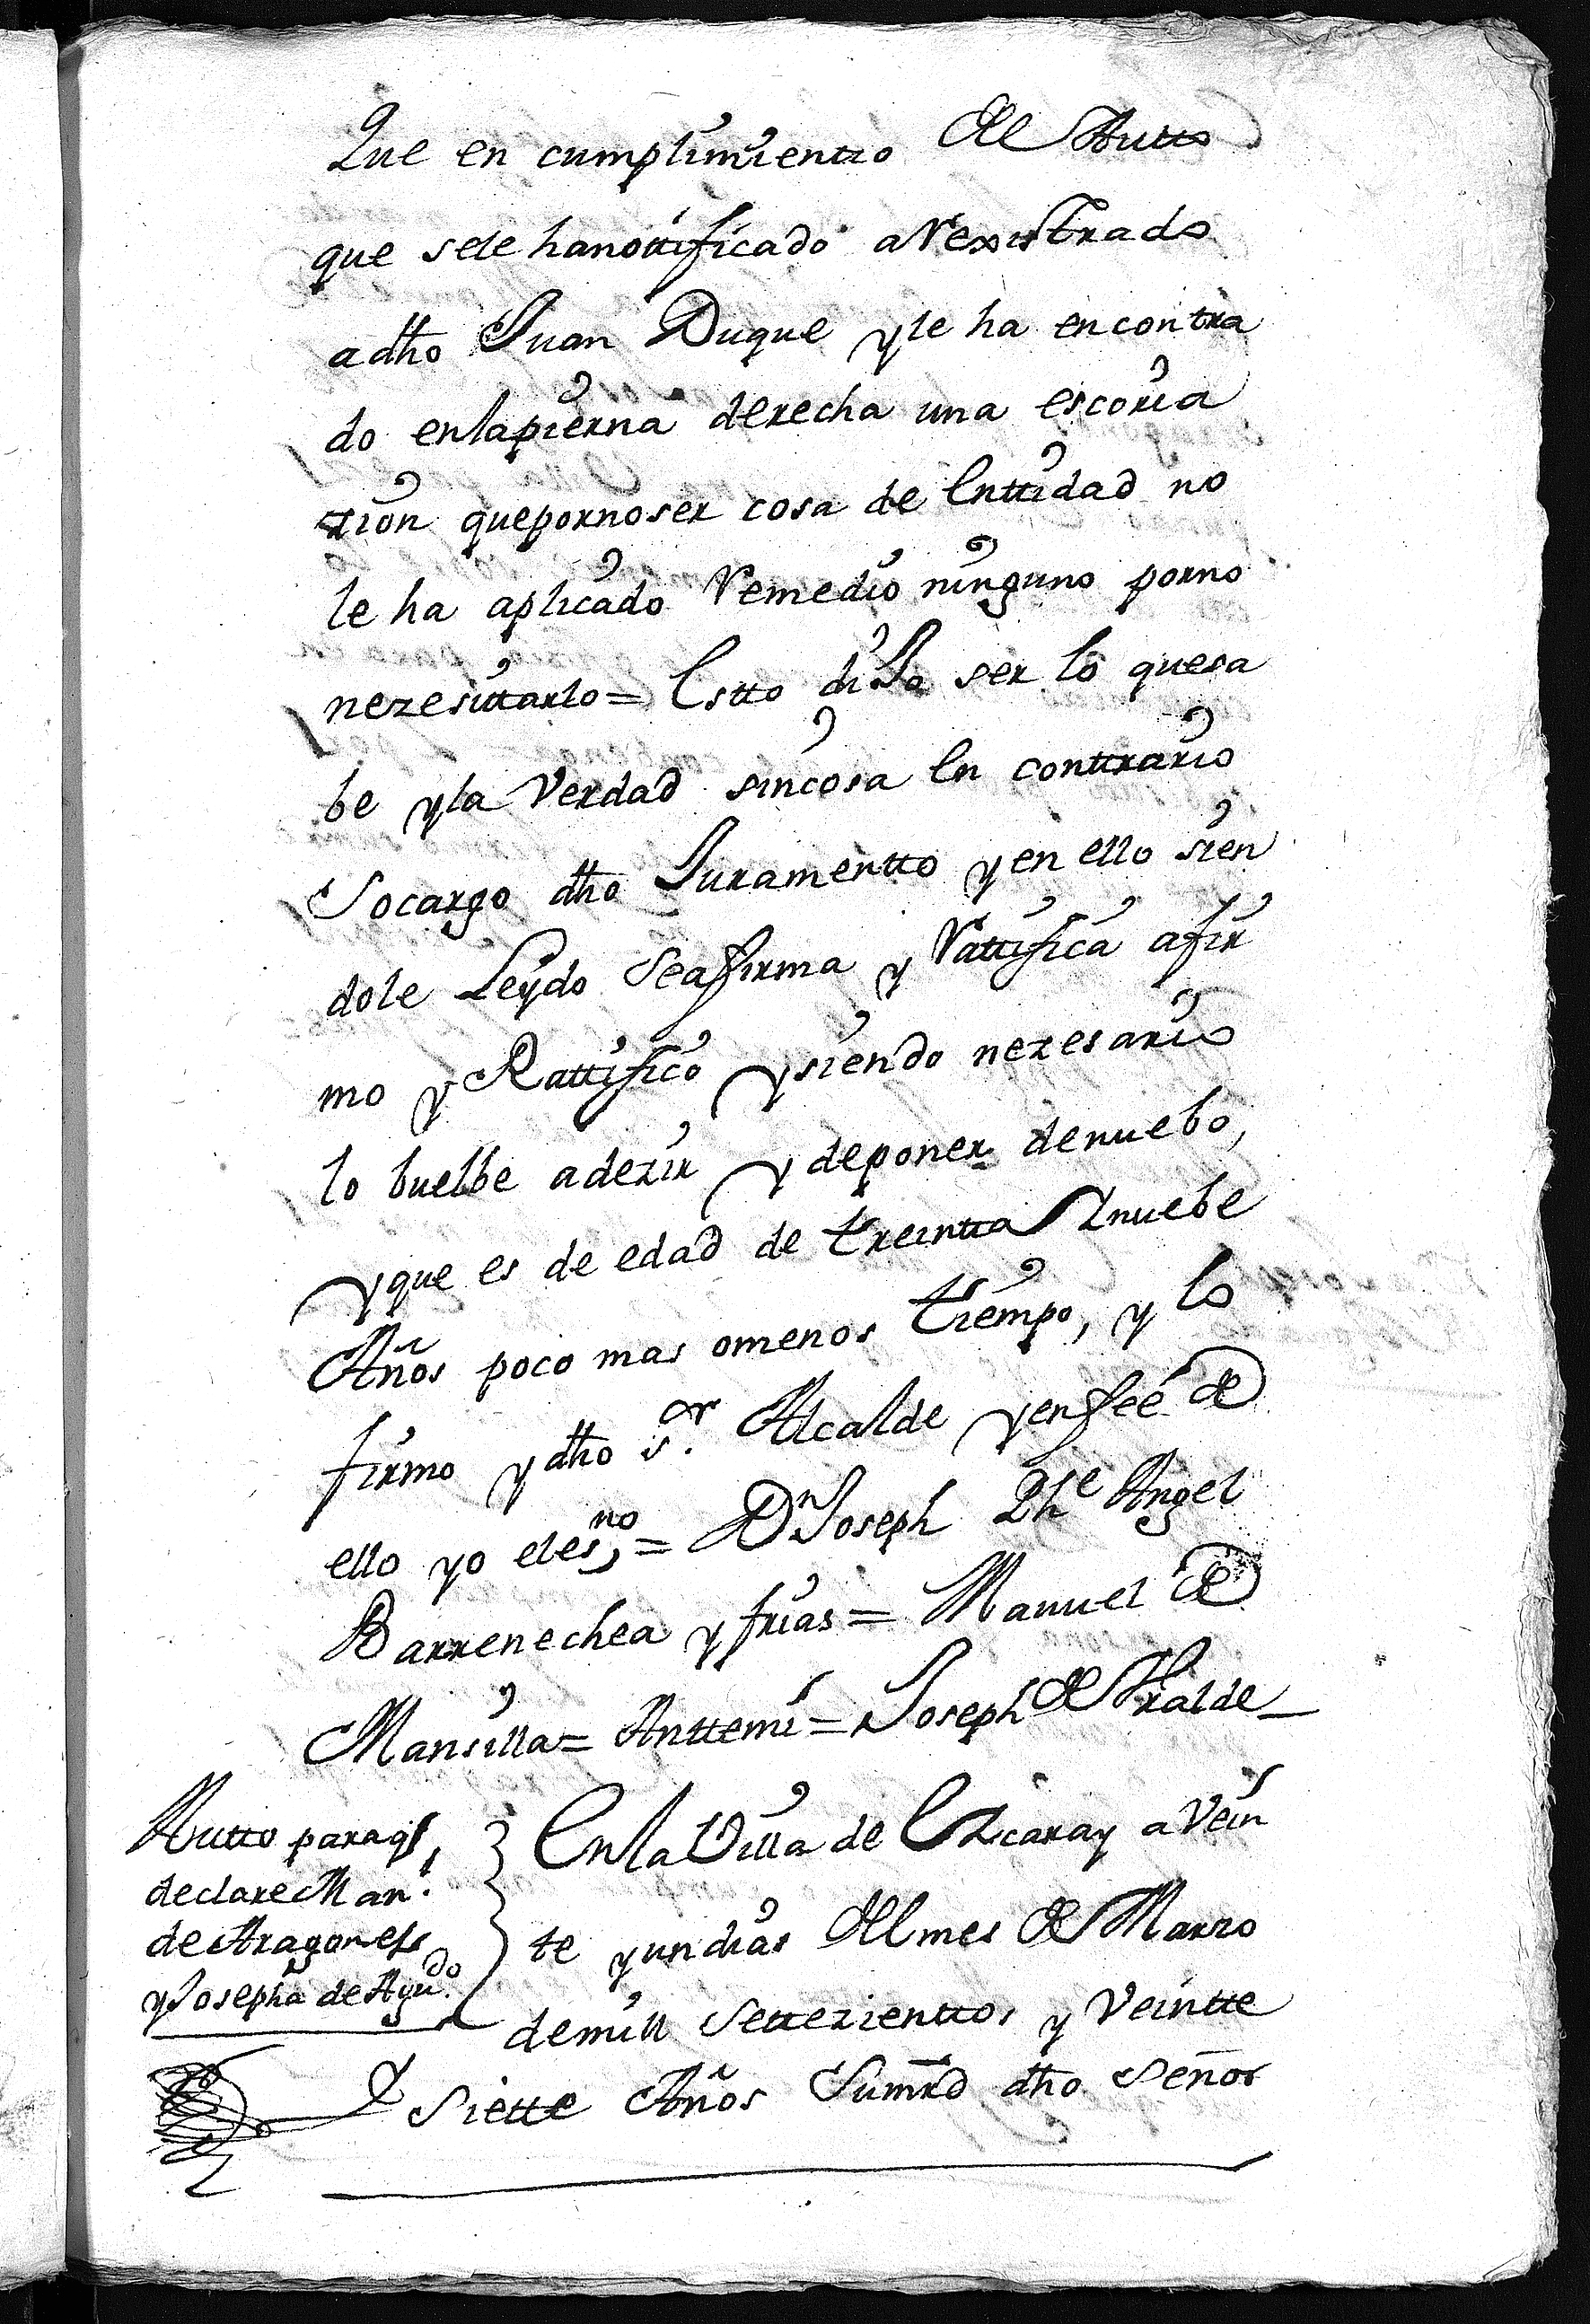 Que en cumplimientto del Autto
que sele hanottificado a Rexistrado
adho Juan Duque yle ha encontra
do enlapierna derecha una escoria
zion quepornoser cosa de Enttidad no
le ha aplicado Remedio ninguno porno
nezesittarlo = Estto diJo ser lo quesa
be yla Verdad sincosa En conttrario
Socargo dho Juramentto yen ello sien
dole Leydo seafirma y Rattifica afir
mo y Rattifico ysiendo nezesario
lo buelbe adezir y deponer denuebo,
yque es de edad de treintta Y nuebe
Años poco mas omenos tiempo, y lo
firmo y dho sr. Alcalde yenfeé de
ello yo eles,no = Dn Joseph Phe Angel
Barrenechea y frias = Manuel de
Mansilla = Anttemi = Joseph de Yralde
Autto paraq,
declare Man.
de Aragones
y Josepha de Agudo.
Enla Villa de Ezcaray a Vein
te yun dias del mes de Marzo
demill settezienttos y Veintte
Y siette Años Sumrd dho señor